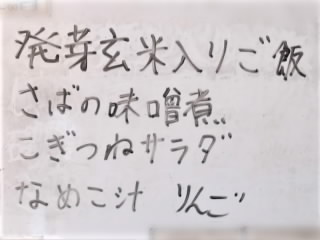 発芽玄米入りご飯
さばの味噌煮
こぎつねサラダ
なめこ汁 りんご